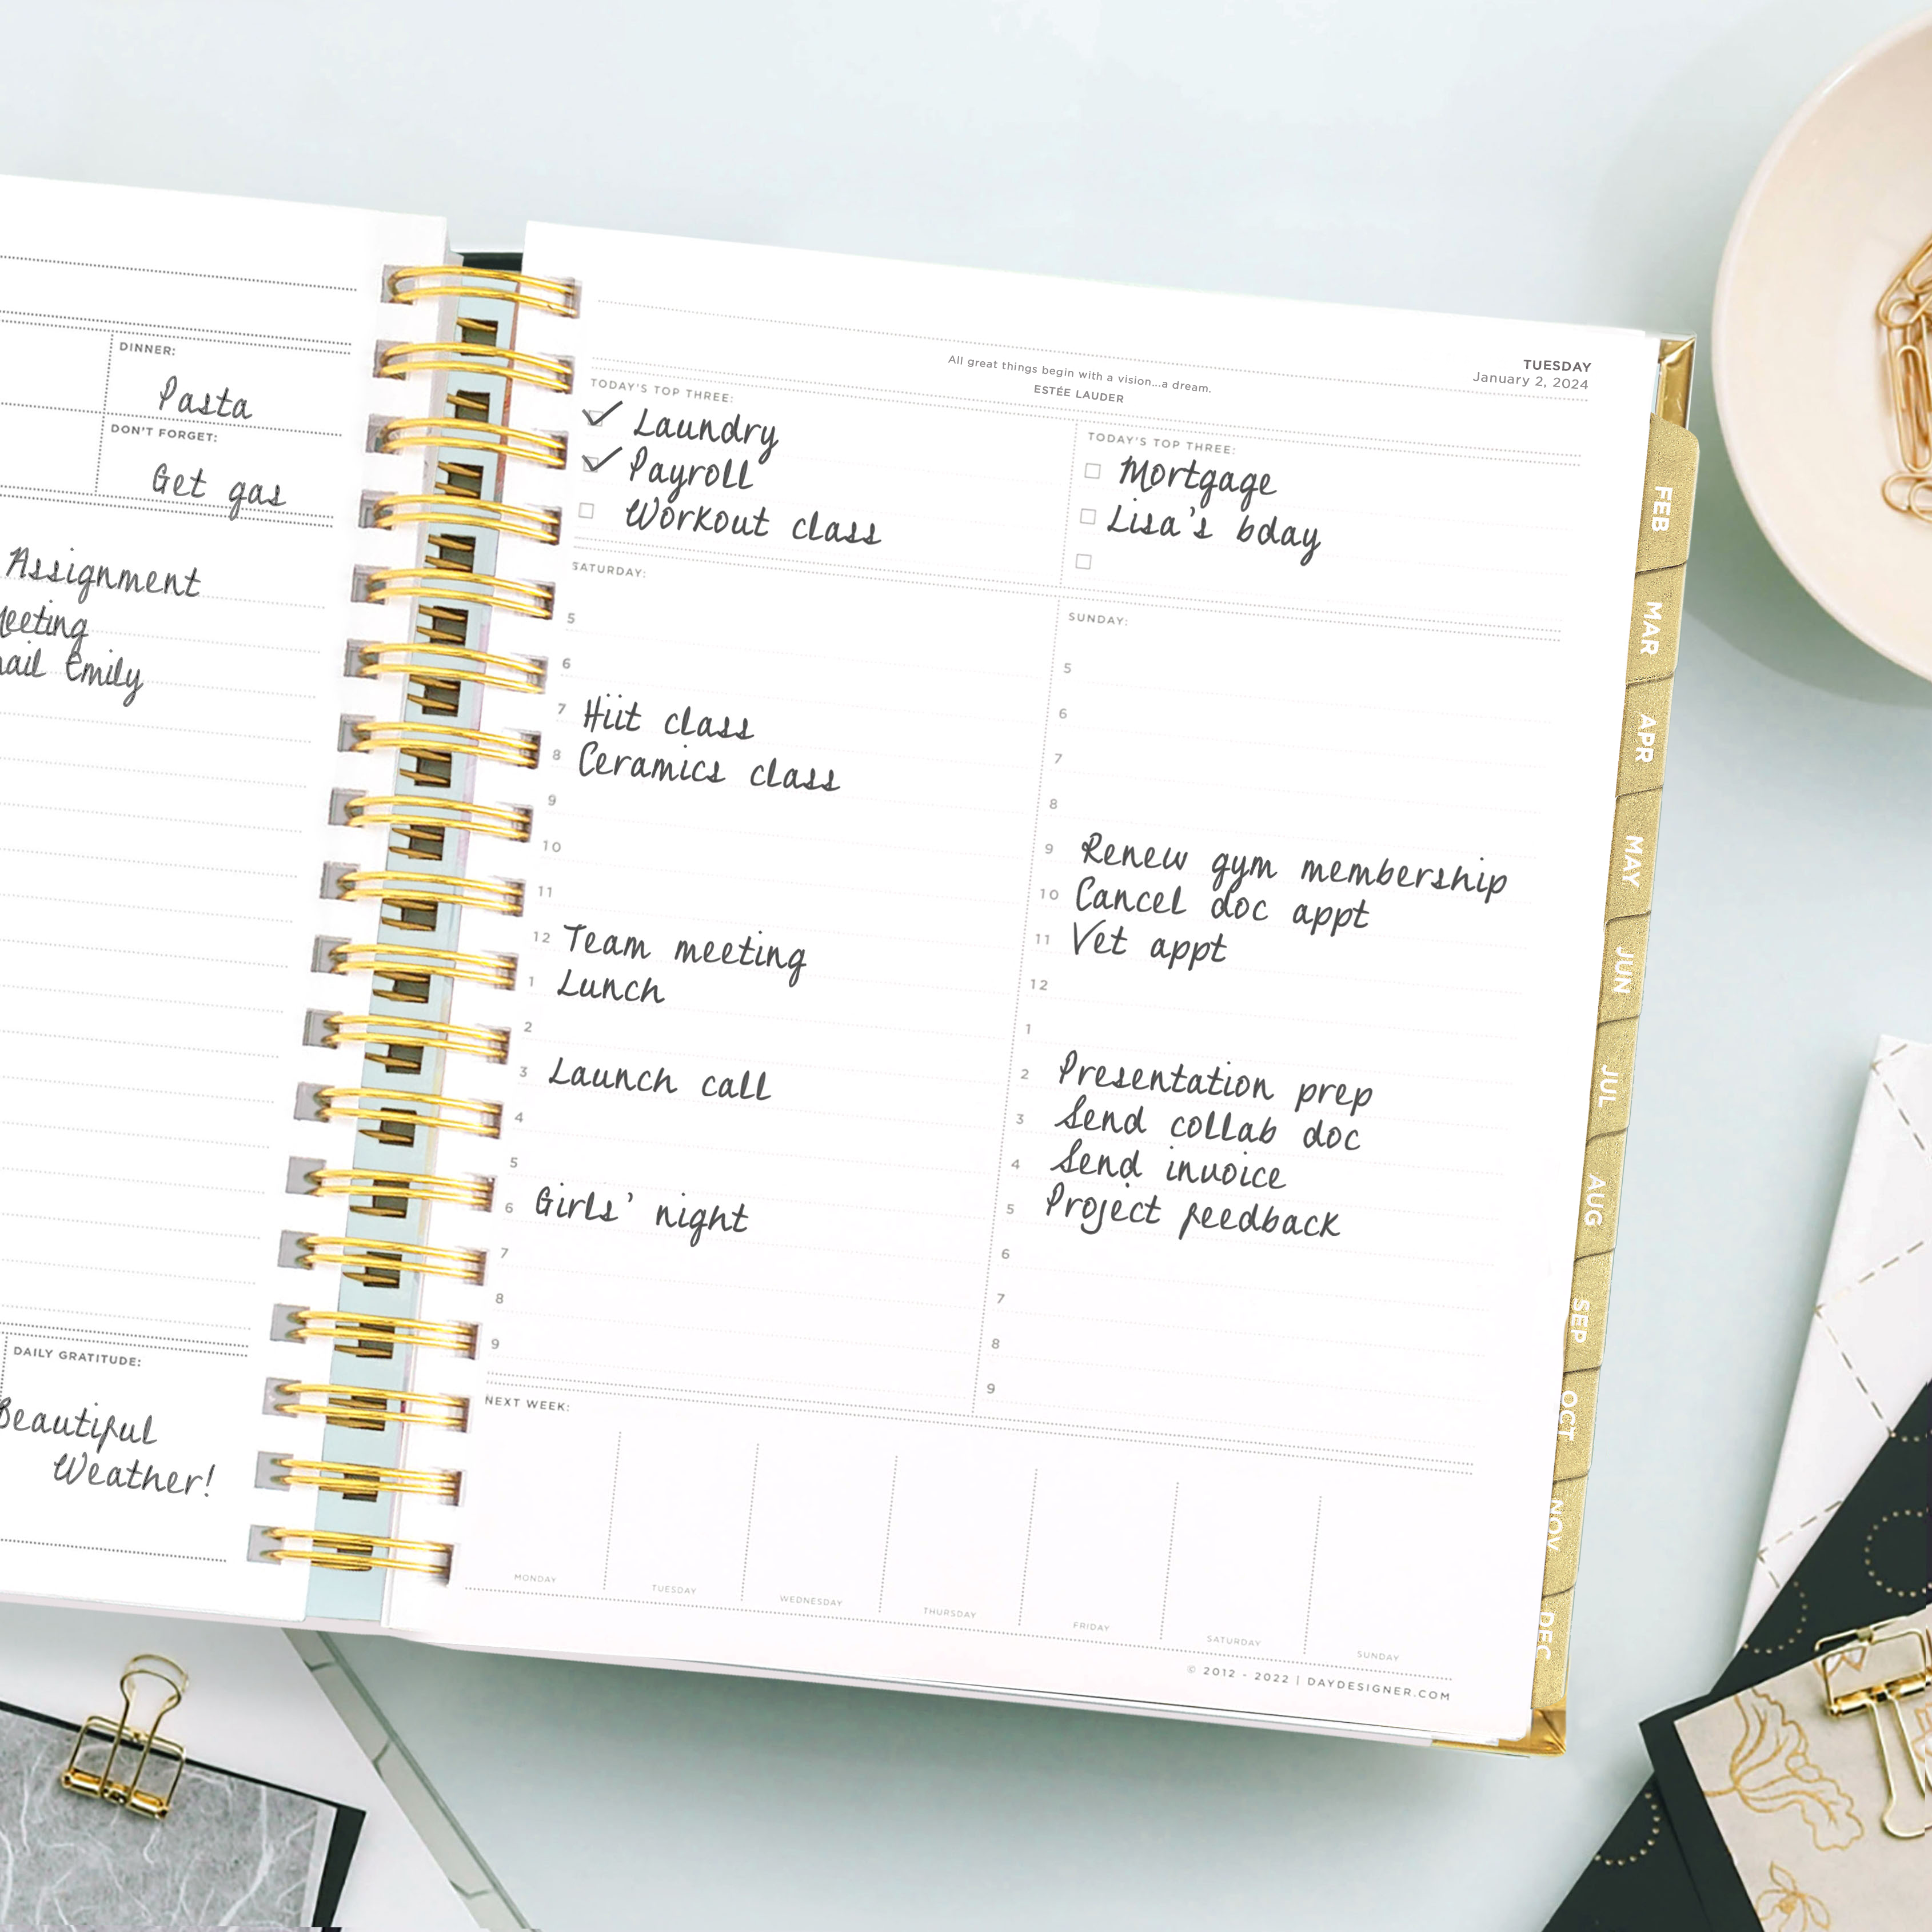 DINNER:
Pasta
DON'T FORGET:
Get gas
Assignment
Emily
DAILY GRATITUDE:
Beautiful
Weather!
TUESDAY
January 2, 2024
All great things begin with a vision...a dream.
ESTÉE LAUDER
TODAY'S TOP THREE:
Laundry
Payroll
Workout class
TODAY'S TOP THREE:
Mortgage
Lisa's bday
SATURDAY:
5
6
7 Hiit class
8 Ceramics class
9
10
11
12 Team meeting
1 Lunch
2
3 Launch call
4
5
6 Girls' night
7
8
9
SUNDAY:
5
6
7
8
9 Renew gym membership
10 Cancel doc appt
11 Vet appt
12
1
2 Presentation prep
3 Send collab doc
4 Send invoice
5 Project feedback
6
7
8
9
NEXT WEEK:
MONDAY
TUESDAY
WEDNESDAY
THURSDAY
FRIDAY
SATURDAY
SUNDAY
© 2012 - 2022 | DAYDESIGNER.COM
FEB
MAR
APR
MAY
JUN
JUL
AUG
SEP
OCT
NOV
DEC